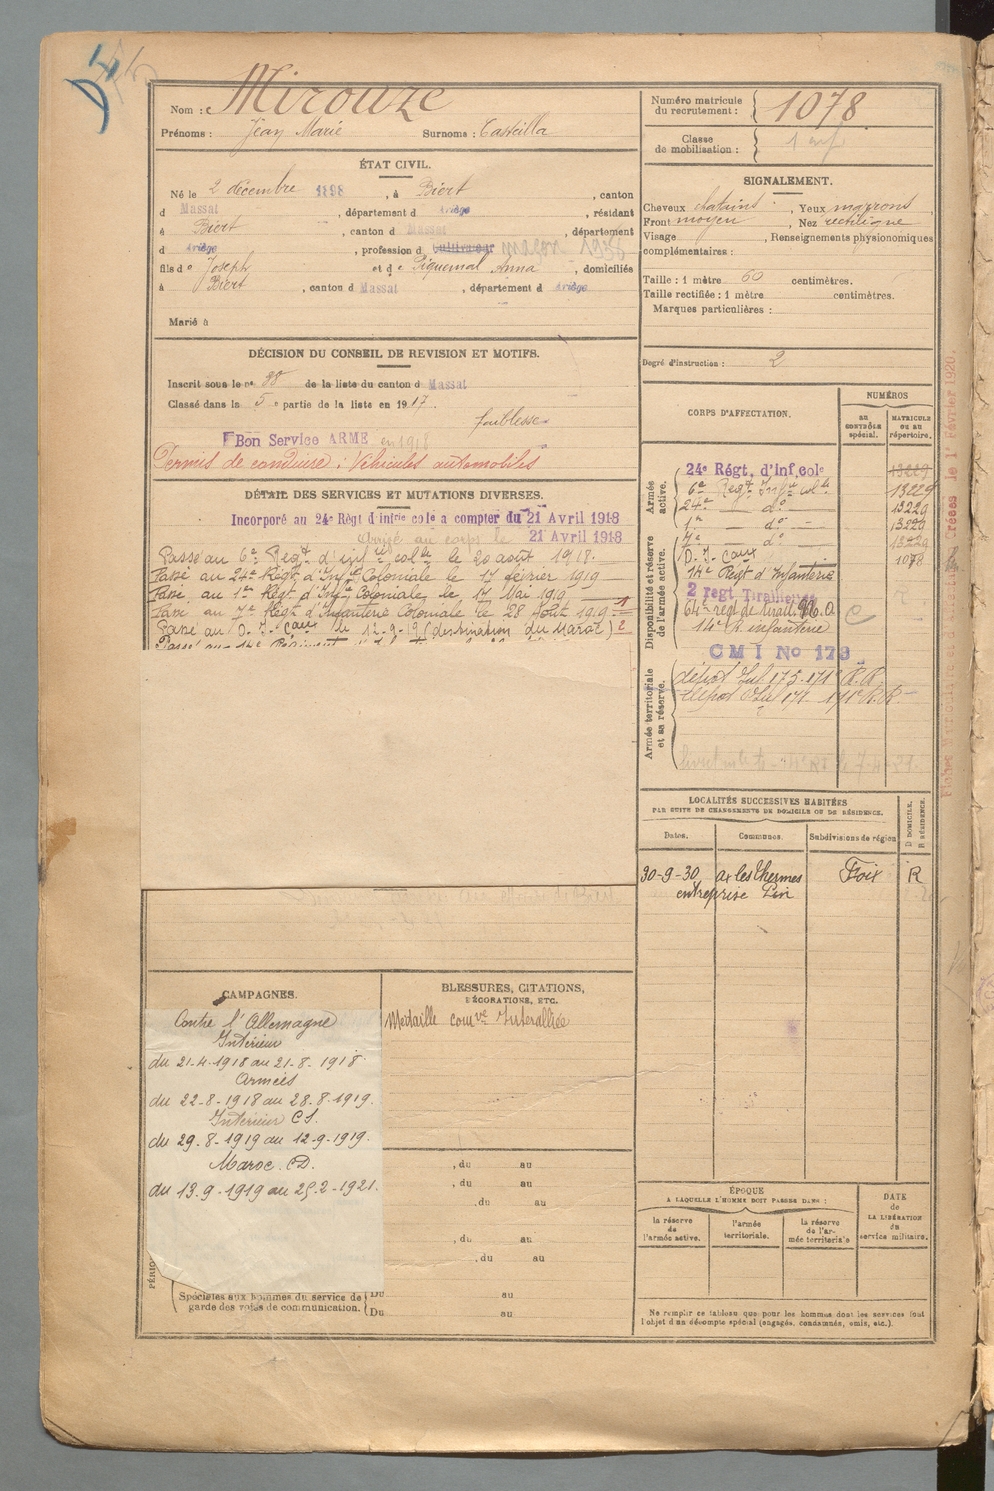 Nom : Mirouze
Prénoms : Jean Marie Surnoms : Casteilla
Numéro matricule du recrutement : 1078
Classe de mobilisation :
ÉTAT CIVIL.
Né le 2 décembre 1898, à Biert, canton
d Massat, département d Ariège, résidant
à Biert, canton d Massat, département
d Ariège, profession d Cultivateur maçon
fils de Joseph et de Piquemal Anna, domiciliés
à Biert, canton d Massat, département d Ariège
Marié à
SIGNALEMENT.
Cheveux chatains, Yeux marrons,
Front moyen, Nez rectiligne
Visage , Renseignements physionomiques
complémentaires :
Taille : 1 mètre 60 centimètres.
Taille rectifiée : 1 mètre centimètres.
Marques particulières :
Degré d'instruction : 2
DÉCISION DU CONSEIL DE REVISION ET MOTIFS.
Inscrit sous le no 38 de la liste du canton d Massat
Classé dans la 5e partie de la liste en 1917.
faiblesse
Bon Service ARME en 1918
Permis de conduire : Véhicules automobiles
DÉTAIL DES SERVICES ET MUTATIONS DIVERSES.
Incorporé au 24e Régt d'infrie cole a compter du 21 Avril 1918
Arrivé au corps le 21 Avril 1918
Passé au 6e Régt d'infie colle le 20 août 1918.
Passé au 24e Régt d'Infie Coloniale le 17 février 1919
Passé au 1er Régt d'Infie Coloniale le 17 Mai 1919
Passé au 7e Régt d'Infanterie Coloniale le 28 Août 1919 1
Passé au D. I. Caux le 12-9-19 (destination du Maroc) 2
CORPS D'AFFECTATION.
NUMÉROS
au contrôle spécial.
MATRICULE ou au répertoire.
Armée active.
24e Régt. d'inf cole 13229
6e Régt Infie colle 13229
24e — do — 13229
1er — do — 13229
7e — do — 13229
D. I. Caux 1078
Disponibilité et réserve de l'armée active.
14e Régt d'Infanterie
2 régt Tirailleurs
64e régt de tirail.
14e R. infanterie
CMI No 173
Armée territoriale et sa réserve.
LOCALITÉS SUCCESSIVES HABITÉES
PAR SUITE DE CHANGEMENTS DE DOMICILE OU DE RÉSIDENCE.
Dates. Communes. Subdivisions de région D DOMICILE. R RÉSIDENCE.
30-9-30 ax les Thermes Foix R
entreprise
CAMPAGNES.
Contre l'Allemagne
Intérieur
du 21-4-1918 au 21-8-1918.
Armées
du 22-8-1918 au 28.8.1919.
Intérieur CS.
du 29-8-1919 au 12-9-1919.
Maroc. CD.
du 13.9-1919 au 25.2-1921.
BLESSURES, CITATIONS,
DÉCORATIONS, ETC.
Médaille comve Interalliée
, du au
, du au
, du au
, du au
, du au
Du au
Du au
PÉRIO
Spéciales aux hommes du service de
garde des voies de communication.
ÉPOQUE
A LAQUELLE L'HOMME DOIT PASSER DANS :
la réserve de l'armée active.
l'armée territoriale.
la réserve de l'armée territoriale
DATE
de
LA LIBÉRATION
du
service militaire.
Ne remplir ce tableau que pour les hommes dont les services font
l'objet d'un décompte spécial (engagés, condamnés, omis, etc.).